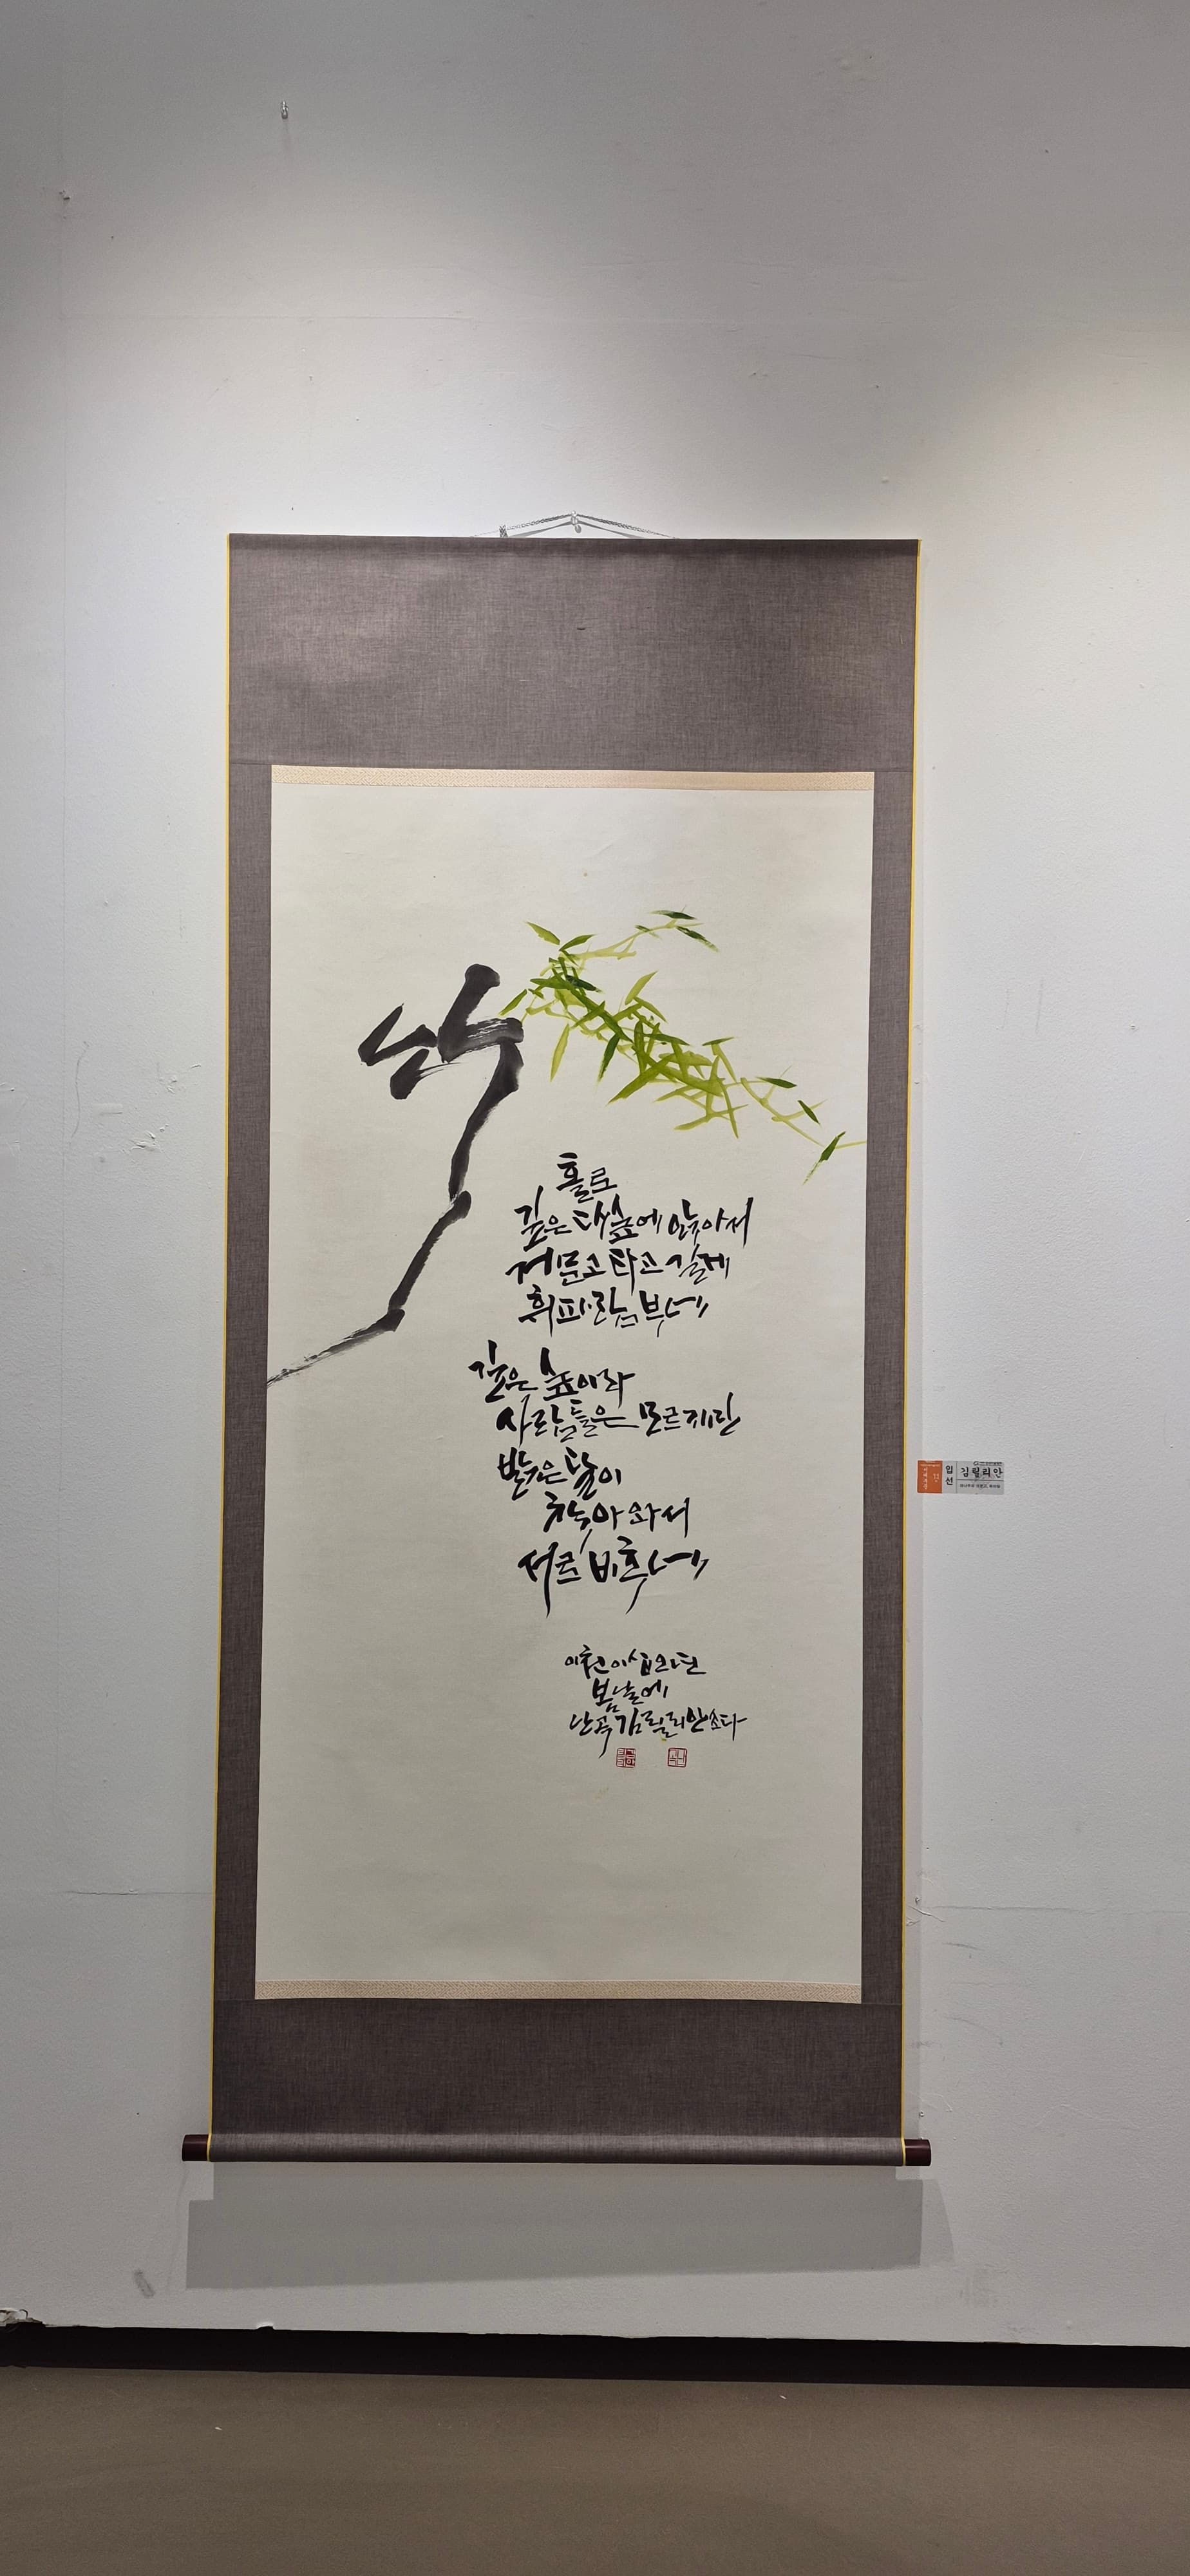 竹
홀로
깊은 대숲에 앉아서
거문고 타고 길게
휘파람 부네
깊은 숲이라
사람들은 모르지만
밝은 달이
찾아와서
서로 비추네
이천이십오년
봄날에
난곡 김릴리안 쓰다
입선
김릴리안